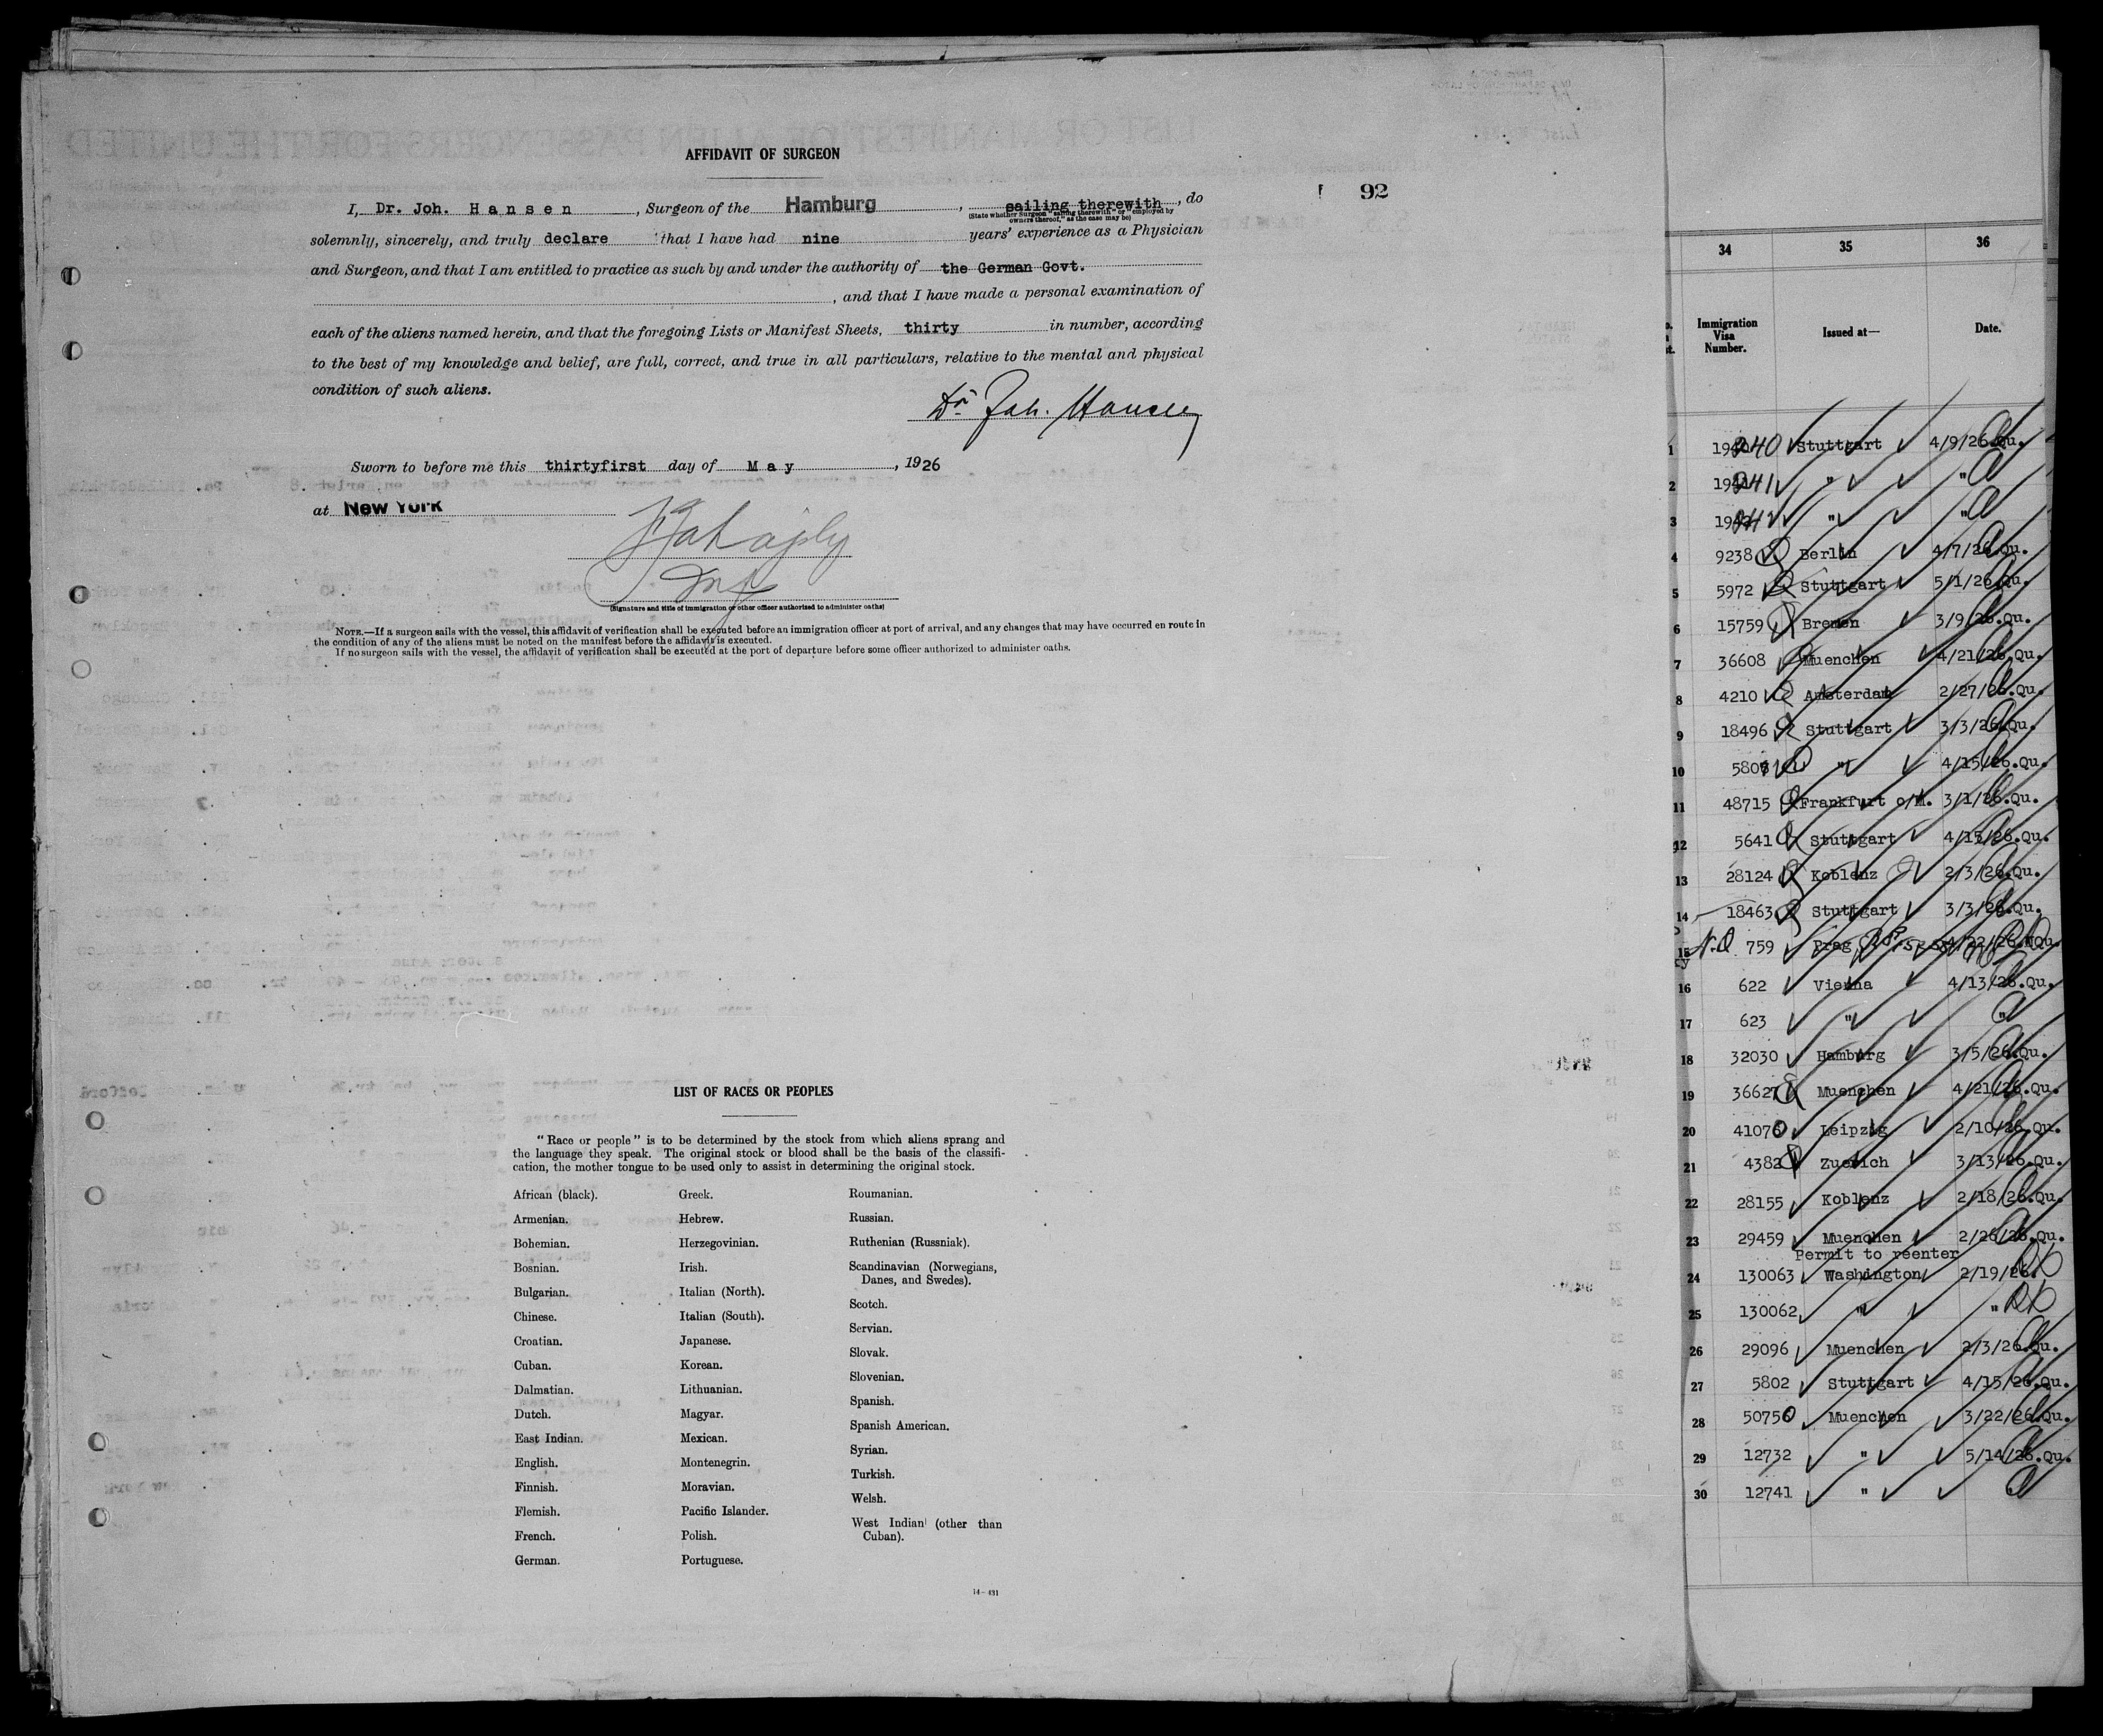 AFFIDAVIT OF SURGEON
92
I, Dr. Joh. Hansen, Surgeon of the Hamburg, sailing therewith, do
(State whether Surgeon "sailing therewith" or "employed by
owners thereof," as the case may be)
solemnly, sincerely, and truly declare that I have had nine years' experience as a Physician
and Surgeon, and that I am entitled to practice as such by and under the authority of the German Govt.
, and that I have made a personal examination of
each of the aliens named herein, and that the foregoing Lists or Manifest Sheets, thirty in number, according
to the best of my knowledge and belief, are full, correct, and true in all particulars, relative to the mental and physical
condition of such aliens.
Dr. Joh. Hansen
Sworn to before me this thirtyfirst day of May, 1926
at New York
(Signature and title of immigration or other officer authorized to administer oaths)
NOTE.—If a surgeon sails with the vessel, this affidavit of verification shall be executed before an immigration officer at port of arrival, and any changes that may have occurred en route in
the condition of any of the aliens must be noted on the manifest before the affidavit is executed.
If no surgeon sails with the vessel, the affidavit of verification shall be executed at the port of departure before some officer authorized to administer oaths.
LIST OF RACES OR PEOPLES
"Race or people" is to be determined by the stock from which aliens sprang and
the language they speak. The original stock or blood shall be the basis of the classifi-
cation, the mother tongue to be used only to assist in determining the original stock.
African (black).
Armenian.
Bohemian.
Bosnian.
Bulgarian.
Chinese.
Croatian.
Cuban.
Dalmatian.
Dutch.
East Indian.
English.
Finnish.
Flemish.
French.
German.
Greek.
Hebrew.
Herzegovinian.
Irish.
Italian (North).
Italian (South).
Japanese.
Korean.
Lithuanian.
Magyar.
Mexican.
Montenegrin.
Moravian.
Pacific Islander.
Polish.
Portuguese.
Roumanian.
Russian.
Ruthenian (Russniak).
Scandinavian (Norwegians,
Danes, and Swedes).
Scotch.
Servian.
Slovak.
Slovenian.
Spanish.
Spanish American.
Syrian.
Turkish.
Welsh.
West Indian (other than
Cuban).
14-431
34 35 36
Immigration
Visa
Number.
Issued at—
Date.
1 240 Stuttgart 4/9/26.Qu.
2 241 " "
3 " "
4 9238 Berlin 4/7/26.Qu.
5 5972 Stuttgart 5/1/26.Qu.
6 15759 Bremen 3/9/26.Qu.
7 36608 Muenchen 4/21/26.Qu.
8 4210 Amsterdam 2/27/26.Qu.
9 18496 Stuttgart 3/3/26.Qu.
10 " 4/15/26.Qu.
11 48715 Frankfurt o/M. 3/1/26.Qu.
12 5641 Stuttgart 4/15/26.Qu.
13 28124 Koblenz 2/3/26.Qu.
14 18463 Stuttgart 3/3/26.Qu.
15 N.Q 759 Prag 4/22/26.NQu.
16 622 Vienna 4/13/26.Qu.
17 623 " "
18 32030 Hamburg 3/5/26.Qu.
19 36627 Muenchen 4/21/26.Qu.
20 41076 Leipzig 2/10/26.Qu.
21 4382 Zuerich 3/13/26.Qu.
22 28155 Koblenz 2/18/26.Qu.
23 29459 Muenchen 2/26/26.Qu.
Permit to reenter
24 130063 Washington 2/19/26.
25 130062 " "
26 29096 Muenchen 2/3/26.Qu.
27 5802 Stuttgart 4/15/26.Qu.
28 50756 Muenchen 3/22/26.Qu.
29 12732 " 5/14/26.Qu.
30 12741 "